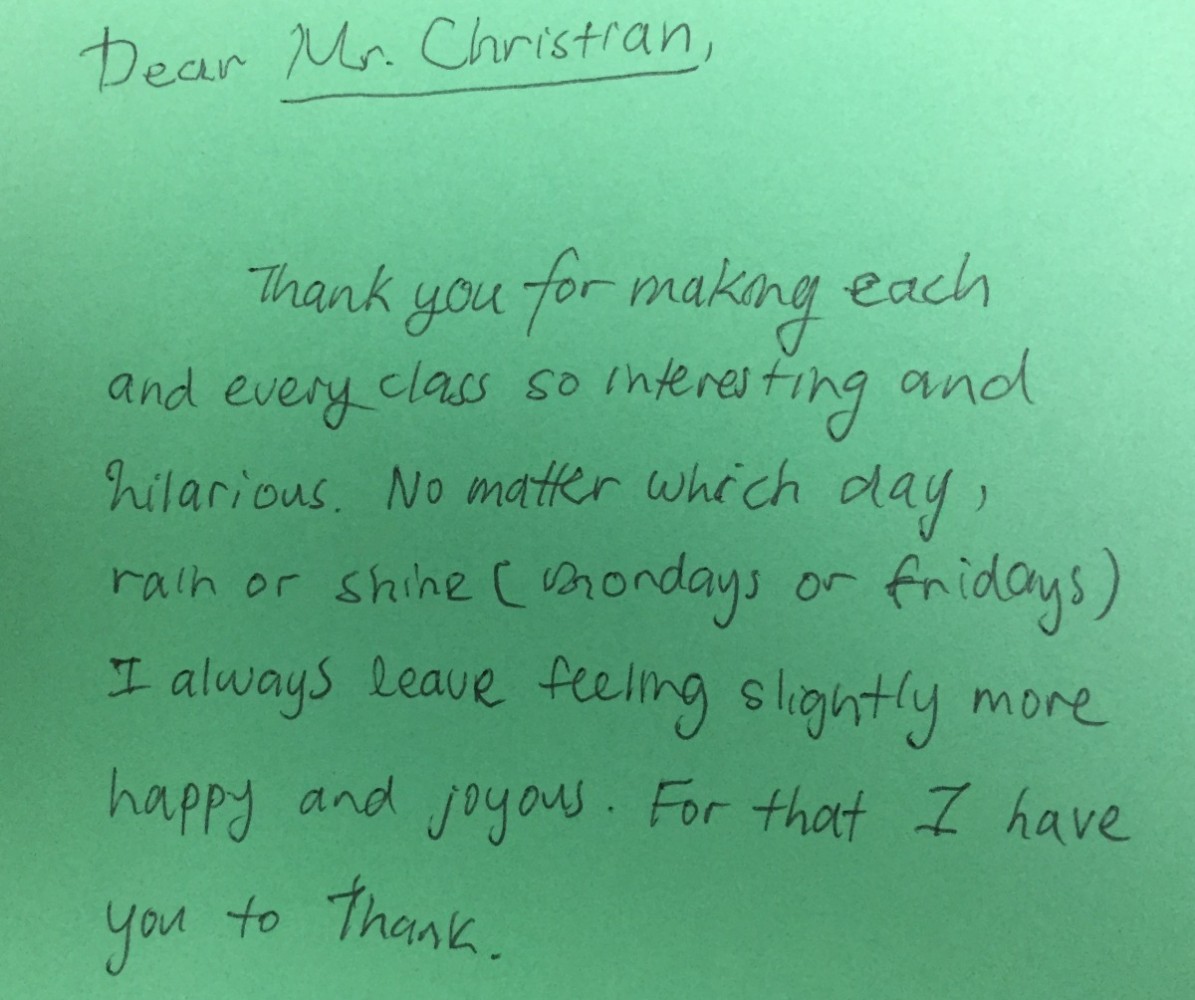 Dear Mr. Christian,
Thank you for making each
and every class so interesting and
hilarious. No matter which day,
rain or shine (mondays or fridays)
I always leave feeling slightly more
happy and joyous. For that I have
you to thank.